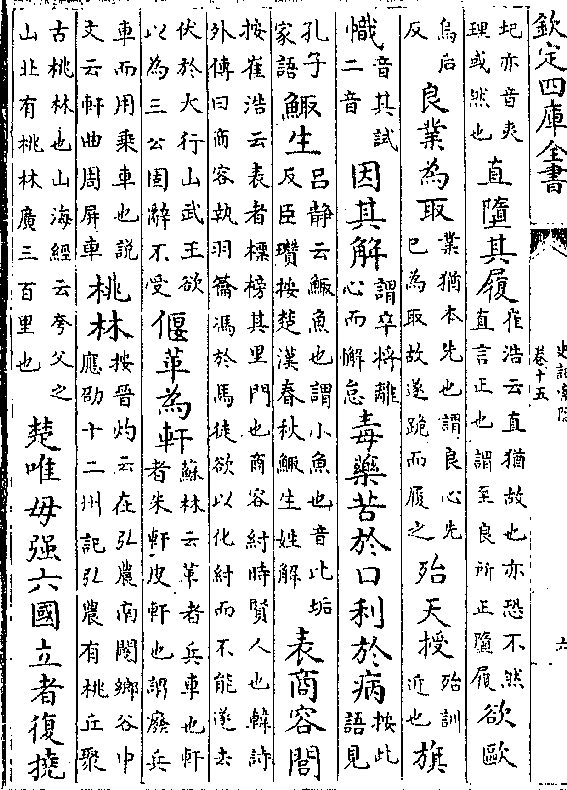 欽定四庫全書
史記索隱
卷十五
六
圯亦音夷
理或然也
直墮其履
崔浩云直猶故也亦恐不然
直言正也謂至良所正墮履
欲歐
烏后
反
良業為取
業猶本先也謂良心先
已為取故遂跪而履之
殆天授
殆訓
近也
旗
幟
音其試
二音
因其解
謂卒將離
心而懈怠
毒藥苦於口利於病
按此
語見
孔子
家語
鯫生
呂静云鯫魚也謂小魚也音此垢
反臣瓚按楚漢春秋鯫生姓解
表商容閭
按崔浩云表者標榜其里門也商容紂時賢人也韓詩
外傳曰商容執羽籥馮於馬徒欲以化紂而不能遂去
伏於大行山武王欲
以為三公固辭不受
偃革為軒
蘇林云革者兵車也軒
者朱軒皮軒也謂廢兵
車而用乘車也說
文云軒曲周屏車
桃林
按晉灼云在弘農南閿鄉谷中
應劭十二州記弘農有桃丘聚
古桃林也山海經云夸父之
山北有桃林廣三百里也
楚唯毋强六國立者復撓